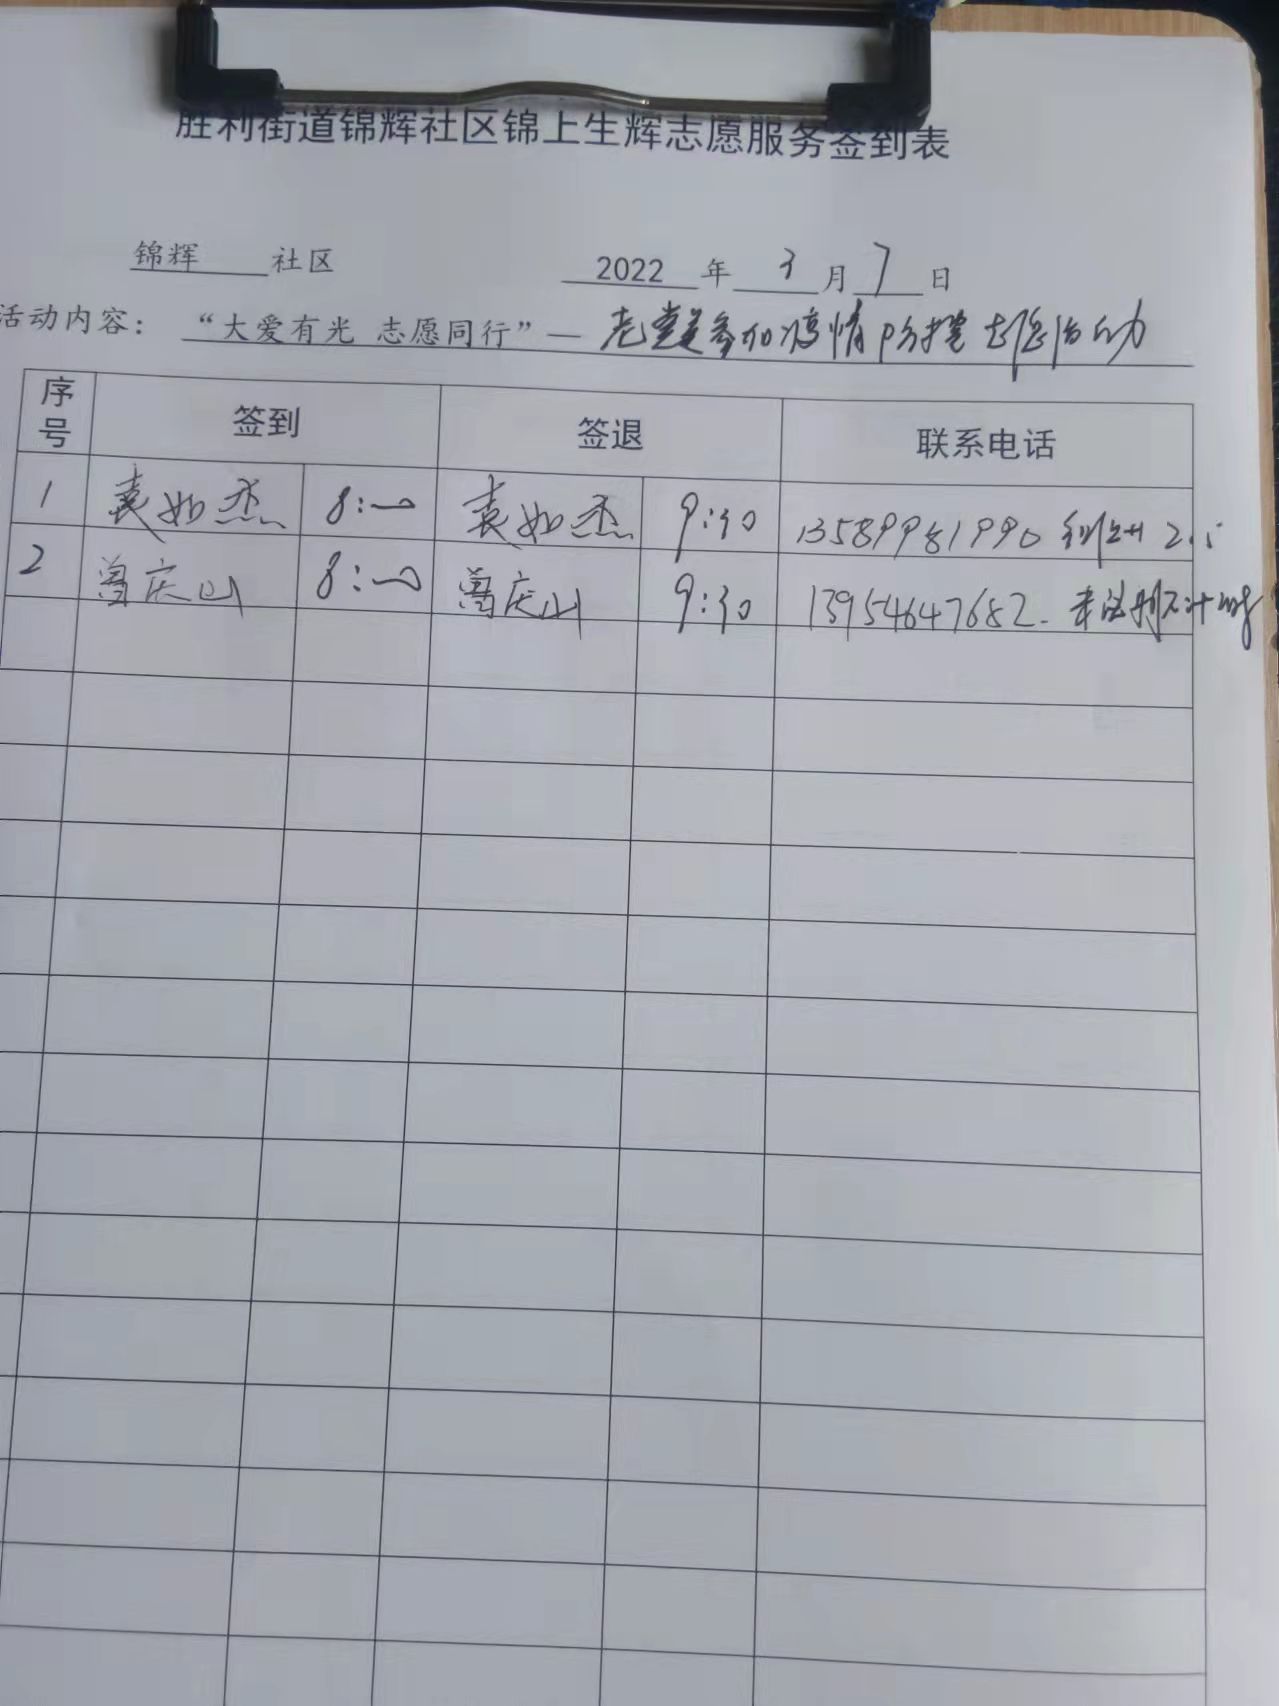 胜利街道锦辉社区锦上生辉志愿服务签到表
锦辉 社区 2022 年 3 月 7 日
活动内容: “大爱有光 志愿同行”— 老党员参加疫情防控志愿活动
序号 签到 签退 联系电话
1 袁如杰 8:00 袁如杰 9:30 13589981990 积分 2.5
2 曾庆山 8:00 曾庆山 9:30 13954647682. 未注册不计时